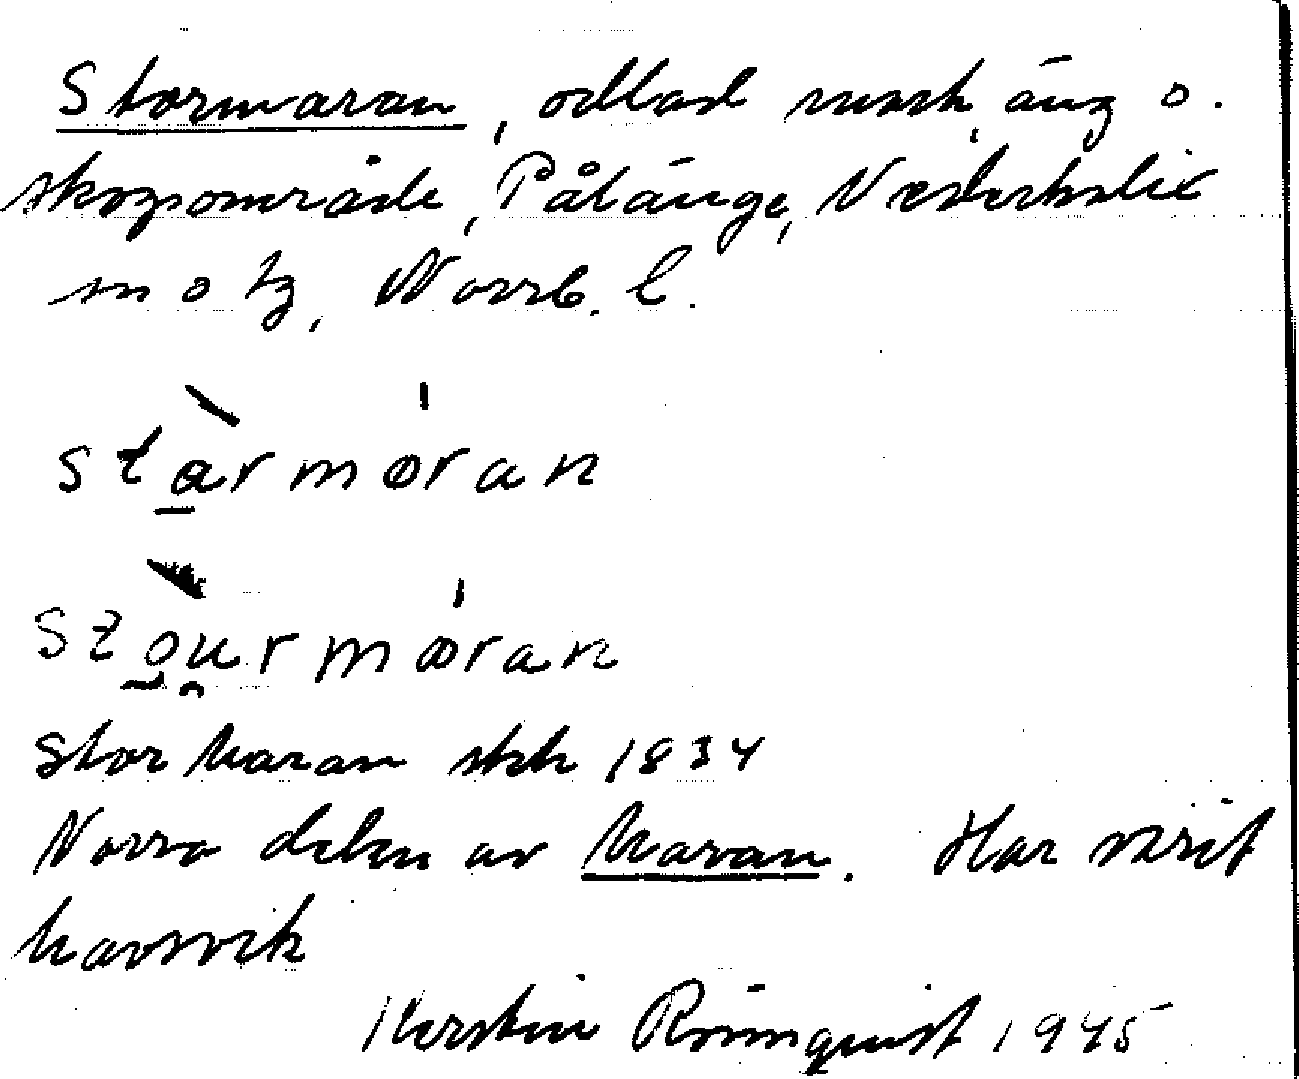 Stormaran, odlad mark, äng o.
skogsområde, Pålänge, Nederkalix
sn o tg, Norrb. l.
stàrmøran
stourmøran
Stor Maran skh 1834
Norra delen av Maran. Har varit
havsvik
Kerstin Rönnquist 1945